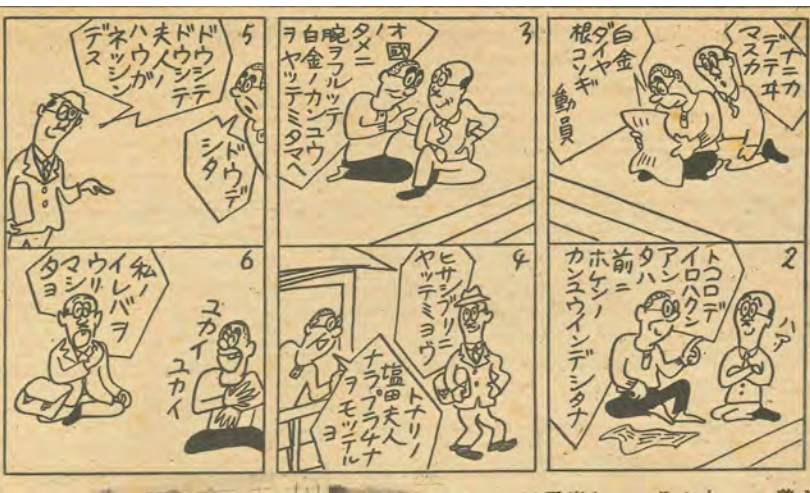 1
ナニカ
デテヰ
マスカ
白金
ダイヤ
根コソギ
動員
2
トコロデ
イロハクン
アンタハ
前ニ
ホケンノ
カンユウインデシタナ
ハア
3
オ國
ノ
タメニ
腕ヲフルッテ
白金ノカンユウ
ヲヤッテミタマヘ
4
ヒサシブリニ
ヤッテミヨウ
トナリノ
塩田夫人
ナラプラチナ
ヲモッテル
ヨ
5
ドウデ
シタ
ドウシテ
ドウシテ
夫人ノ
ハウガ
ネッシン
デス
6
ユカイ
ユカイ
私ノ
イレバヲ
ウリ
マシ
タヨ